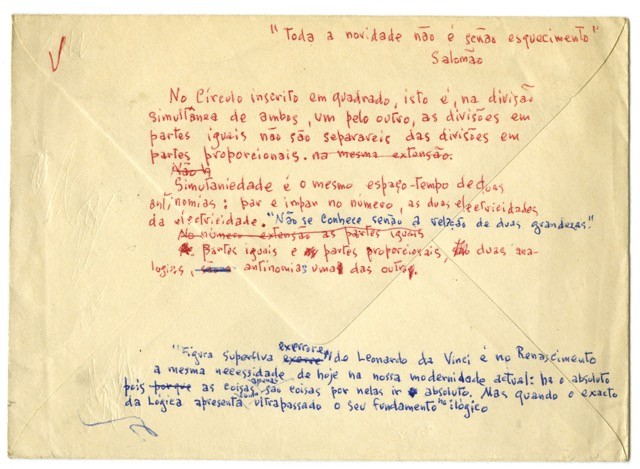 "Toda a novidade não é senão esquecimento"
Salomão
No Círculo inscrito em quadrado, isto é, na divisão
simultânea de ambos, um pelo outro, as divisões em
partes iguais não são separaveis das divisões em
partes proporcionais. na mesma extensão.
Não h
Simultaniedade é o mesmo espaço-tempo de duas
antinomias: par e impar no número, as duas electricidades
da electricidade. "Não se conhece senão a relação de duas grandezas."
No número extensão as partes iguais
partes iguais e partes proporcionais, duas ana-
logias, antinomias uma das outra.
exerrore
"Figura superflva exerce" de Leonardo da Vinci é no Renascimento
a mesma necessidade de hoje na nossa modernidade actual: ha o absoluto
pois porque as coisas apenas são coisas por nelas ir o absoluto. Mas quando o exacto
da Lógica apresenta ultrapassado o seu fundamento no ilógico